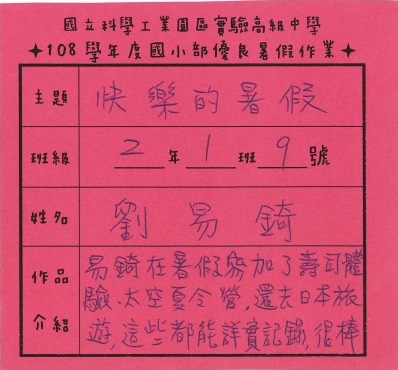 國立科學工業園區實驗高級中學
✦108學年度國小部優良暑假作業✦
主題 快樂的暑假
班級 2 年 1 班 9 號
姓名 劉易錡
作品介紹
易錡在暑假參加了壽司體
驗、太空夏令營，還去日本旅
遊，這些都能詳實記錄，很棒